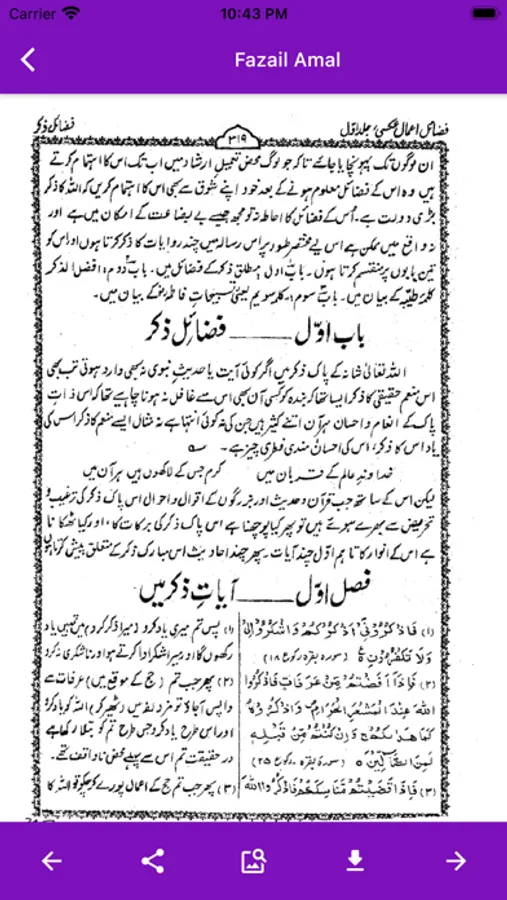 Carrier 10:43 PM
Fazail Amal
فضائل اعمال عکسی، جلد اوّل ۳۱۹ فضائل ذکر
ان لوگوں تک پہونچایا جائے تاکہ جو لوگ محض تعمیلِ ارشاد میں اب تک اس کا اہتمام کرتے
ہیں وہ اس کے فضائل معلوم ہونے کے بعد خود اپنے شوق سے بھی اس کا اہتمام کریں کہ اللہ کا ذکر
بڑی دولت ہے۔ اس کے فضائل کا احاطہ نہ تو مجھ جیسے بے بضاعت کے امکان میں ہے اور
نہ واقع میں ممکن ہے اس لیے مختصر طور پر اس رسالہ میں چند روایات کا ذکر کرتا ہوں اور اس کو
تین بابوں پر منقسم کرتا ہوں۔ باب اول مطلق ذکر کے فضائل میں۔ باب دوم، افضل الذکر
کلمۂ طیّبہ کے بیان میں۔ باب سوم، کلمہ سویم یعنی تسبیحاتِ فاطمہؓ کے بیان میں۔
باب اوّل ــــــ فضائلِ ذکر
اللہ تعالیٰ شانہ کے پاک ذکر میں اگر کوئی آیت یا حدیثِ نبوی نہ بھی وارد ہوتی تب بھی
اس منعمِ حقیقی کا ذکر ایسا تھا کہ بندہ کو کسی آن بھی اس سے غافل نہ ہونا چاہیے تھا کہ اس ذاتِ
پاک کے انعام و احسان ہر آن اتنے کثیر ہیں جن کی نہ کوئی انتہا ہے نہ مثال ایسے منعم کا ذکر اس کی
یاد اس کا ذکر، اس کی احسان مندی فطری چیز ہے۔
خداوندِ عالم کے قربان میں کرم جس کے لاکھوں ہیں ہر آن میں
لیکن اس کے ساتھ جب قرآن و حدیث اور بزرگوں کے اقوال و احوال اس پاک ذکر کی ترغیب و
تحریض سے بھرے ہوئے ہیں تو پھر کیا پوچھنا ہے اس پاک ذکر کی برکات کا، اور کیا ٹھکانا
ہے اس کے انوار کا تاہم اوّل چند آیات پھر چند احادیث اس مبارک ذکر کے متعلق پیش کرتا ہوں
فصل اوّل ــــــ آیاتِ ذکر میں
(۱) فَاذْكُرُوْنِيْ اَذْكُرْكُمْ وَاشْكُرُوْا لِيْ
وَلَا تَكْفُرُوْنِ ۝ (سورہ بقرہ رکوع ۱۸)
(۲) فَإِذَا اَفَضْتُمْ مِّنْ عَرَفَاتٍ فَاذْكُرُوا
اللّٰهَ عِنْدَ الْمَشْعَرِ الْحَرَامِ وَاذْكُرُوْهُ
كَمَا هَدٰىكُمْ وَاِنْ كُنْتُمْ مِّنْ قَبْلِهٖ
لَمِنَ الضَّآلِّيْنَ ۝ (سورہ بقرہ، رکوع ۲۵)
(۳) فَاِذَا قَضَيْتُمْ مَّنَاسِكَكُمْ فَاذْكُرُوا اللّٰهَ
(۱) پس تم میری یاد کرو (میرا ذکر کرو) میں تمہیں یاد
رکھوں گا اور میرا شکر ادا کرتے رہو اور ناشکری نہ کرو
(۲) پھر جب تم (حج کے موقع میں) عرفات سے
واپس آجاؤ تو مزدلفہ میں (ٹھیر کر) اللہ کو یاد کرو
اور اس طرح یاد کرو جس طرح تم کو بتلا رکھا ہے
در حقیقت تم اس سے پہلے محض ناواقف تھے۔
(۳) پھر جب تم حج کے اعمال پورے کر چکو تو اللہ کا